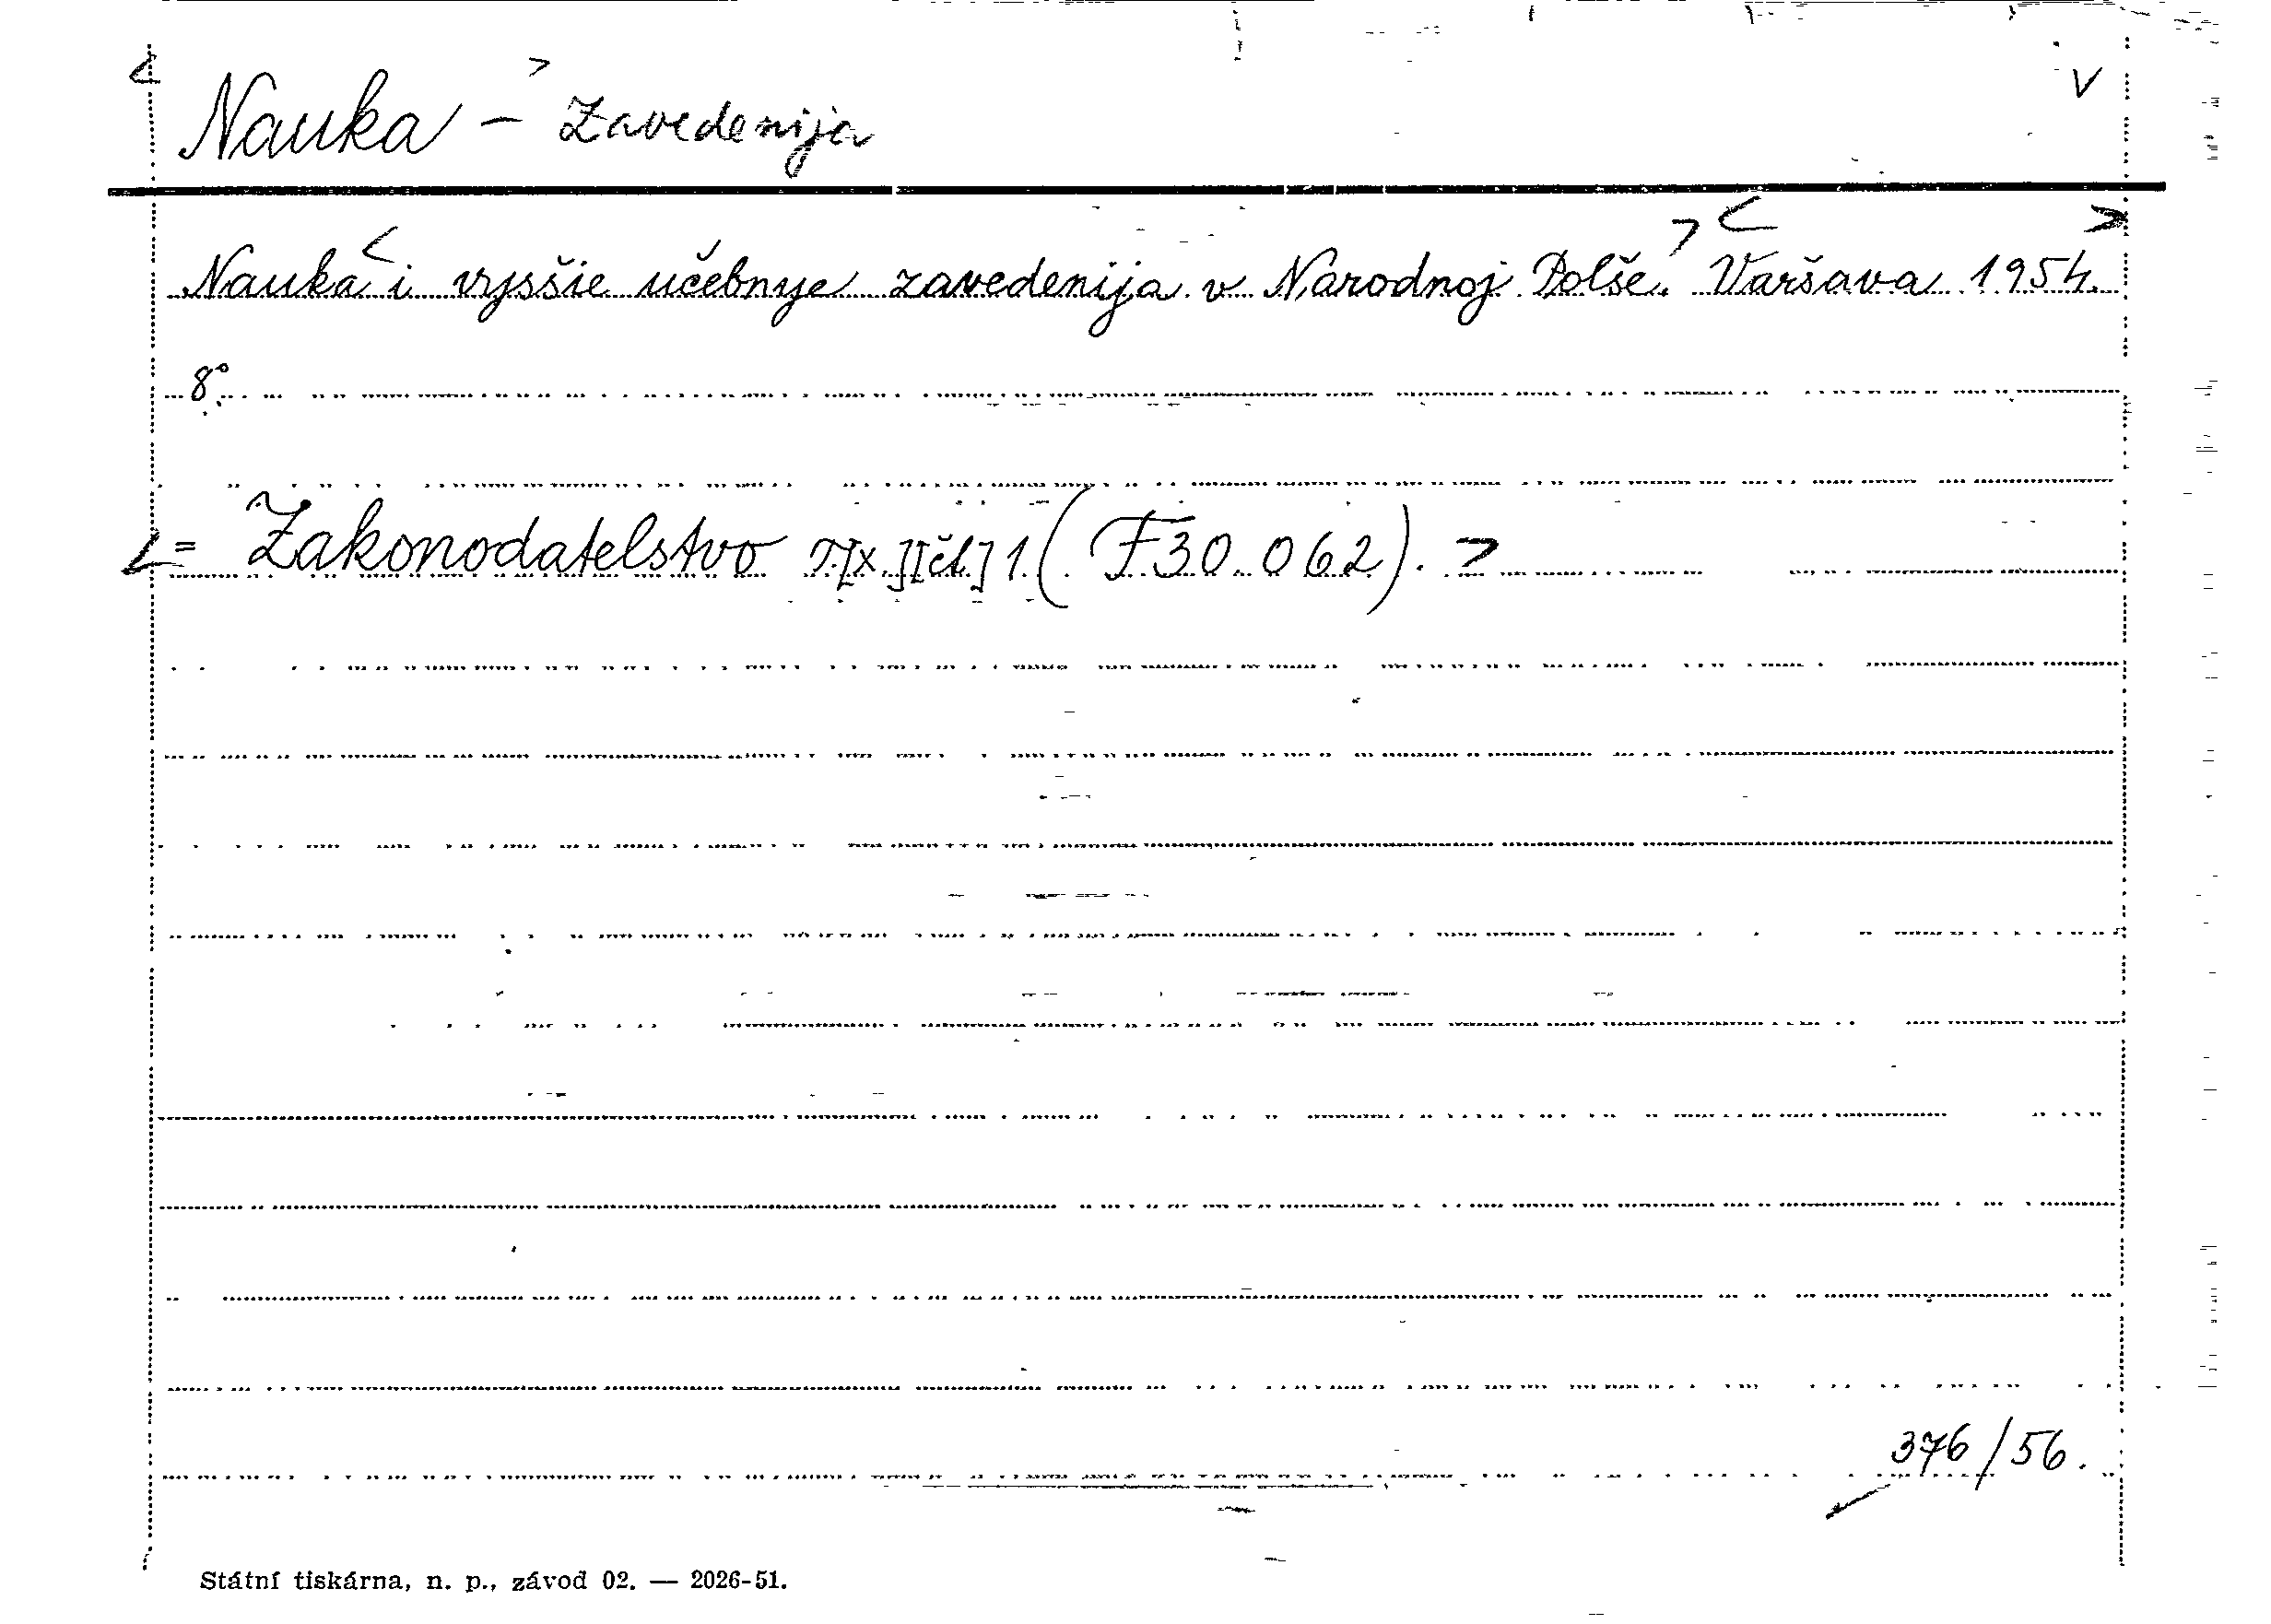 Nauka – Zavedenija
Nauka i vysšie učebnye zavedenija v Narodnoj Polše. Varšava 1954.
8°.
= Zakonodatelstvo T[x.][čl.] 1 (F 30.062).
376/56.
Státní tiskárna, n. p., závod 02. — 2026-51.